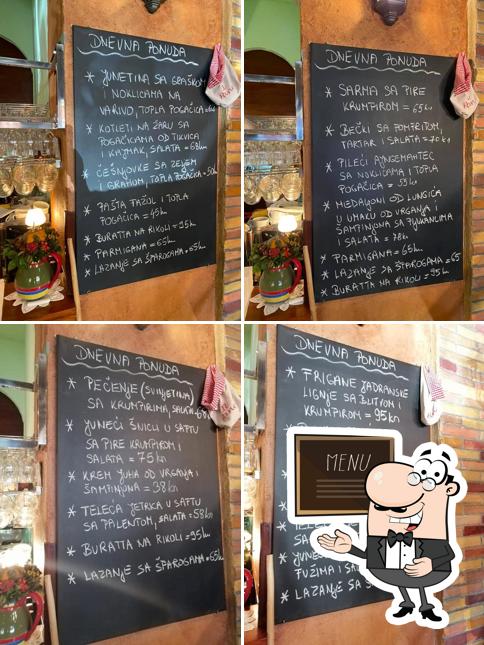 DNEVNA PONUDA
* JUNETINA SA GRAŠKOM
I NOKLICAMA NA
VARIVO, TOPLA POGAČICA
* KOTLETI NA ŽARU SA
POGAČICAMA OD TIKVICA
I KAJMAK, SALATA = 68kn
* ČEŠNJOVKE SA ZELJEM
I GRAHOM, TOPLA POGAČICA = 50kn
* PAŠTA FAŽOL I TOPLA
POGAČICA = 45kn
* BURATTA NA RIKOLI = 95kn
* PARMIGANA = 65kn
* LAZANJE SA ŠPAROGAMA = 65kn
DNEVNA PONUDA
* SARMA SA PIRE
KRUMPIROM = 65kn
* BEČKI SA POMFRITOM,
TARTAR I SALATA = 70kn
* PILEĆI AJNGEMAHTEC
SA NOKLICAMA I TOPLA
POGAČICA = 55kn
* MEDALJONI OD LUNGIĆA
U UMAKU OD VRGANJA I
ŠAMPINJONA SA
I SALATA = 78kn
* PARMIGANA = 65kn
* LAZANJE SA ŠPAROGAMA = 65
* BURATTA NA RIKOLI = 95kn
DNEVNA PONUDA
* PEČENJE (SVINJETINA)
SA KRUMPIRIMA, SALATA = 68kn
* JUNEĆI ŠNICL U SAFTU
SA PIRE KRUMPIROM I
SALATA = 75kn
* KREM JUHA OD VRGANJA I
ŠAMPINJONA = 38kn
* TELEĆA JETRICA U SAFTU
SA PALENTOM, SALATA = 58kn
* BURATTA NA RIKOLI = 95kn
* LAZANJE SA ŠPAROGAMA = 65kn
DNEVNA PONUDA
* FRIGANE JADRANSKE
LIGNJE SA BLITVOM I
KRUMPIROM = 95kn
MENU
* TELEĆ
SA
* JUNE
FUŽIMA I SAL
* LAZANJE SA Š